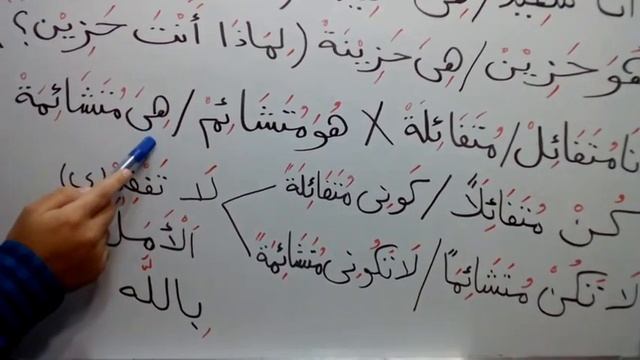 هُوَ حَزِيْنْ / هِىَ حَزِيْنَةْ (لِمَاذَا أَنْتَ حَزِيْن؟
نا مُتَفَائِلْ / مُتَفَائِلَةْ X هُوَ مُتَشَائِمْ / هِىَ مُتَشَائِمَةْ
كُنْ مُتَفَائِلاً / كُونِى مُتَفَائِلَةً
لَا تَكُنْ مُتَشَائِمًا / لَا تَكُونِى مُتَشَائِمَةً
لَا تَفْقِدْ (ى)
اَلْأَمَلَ
بِاللَّه